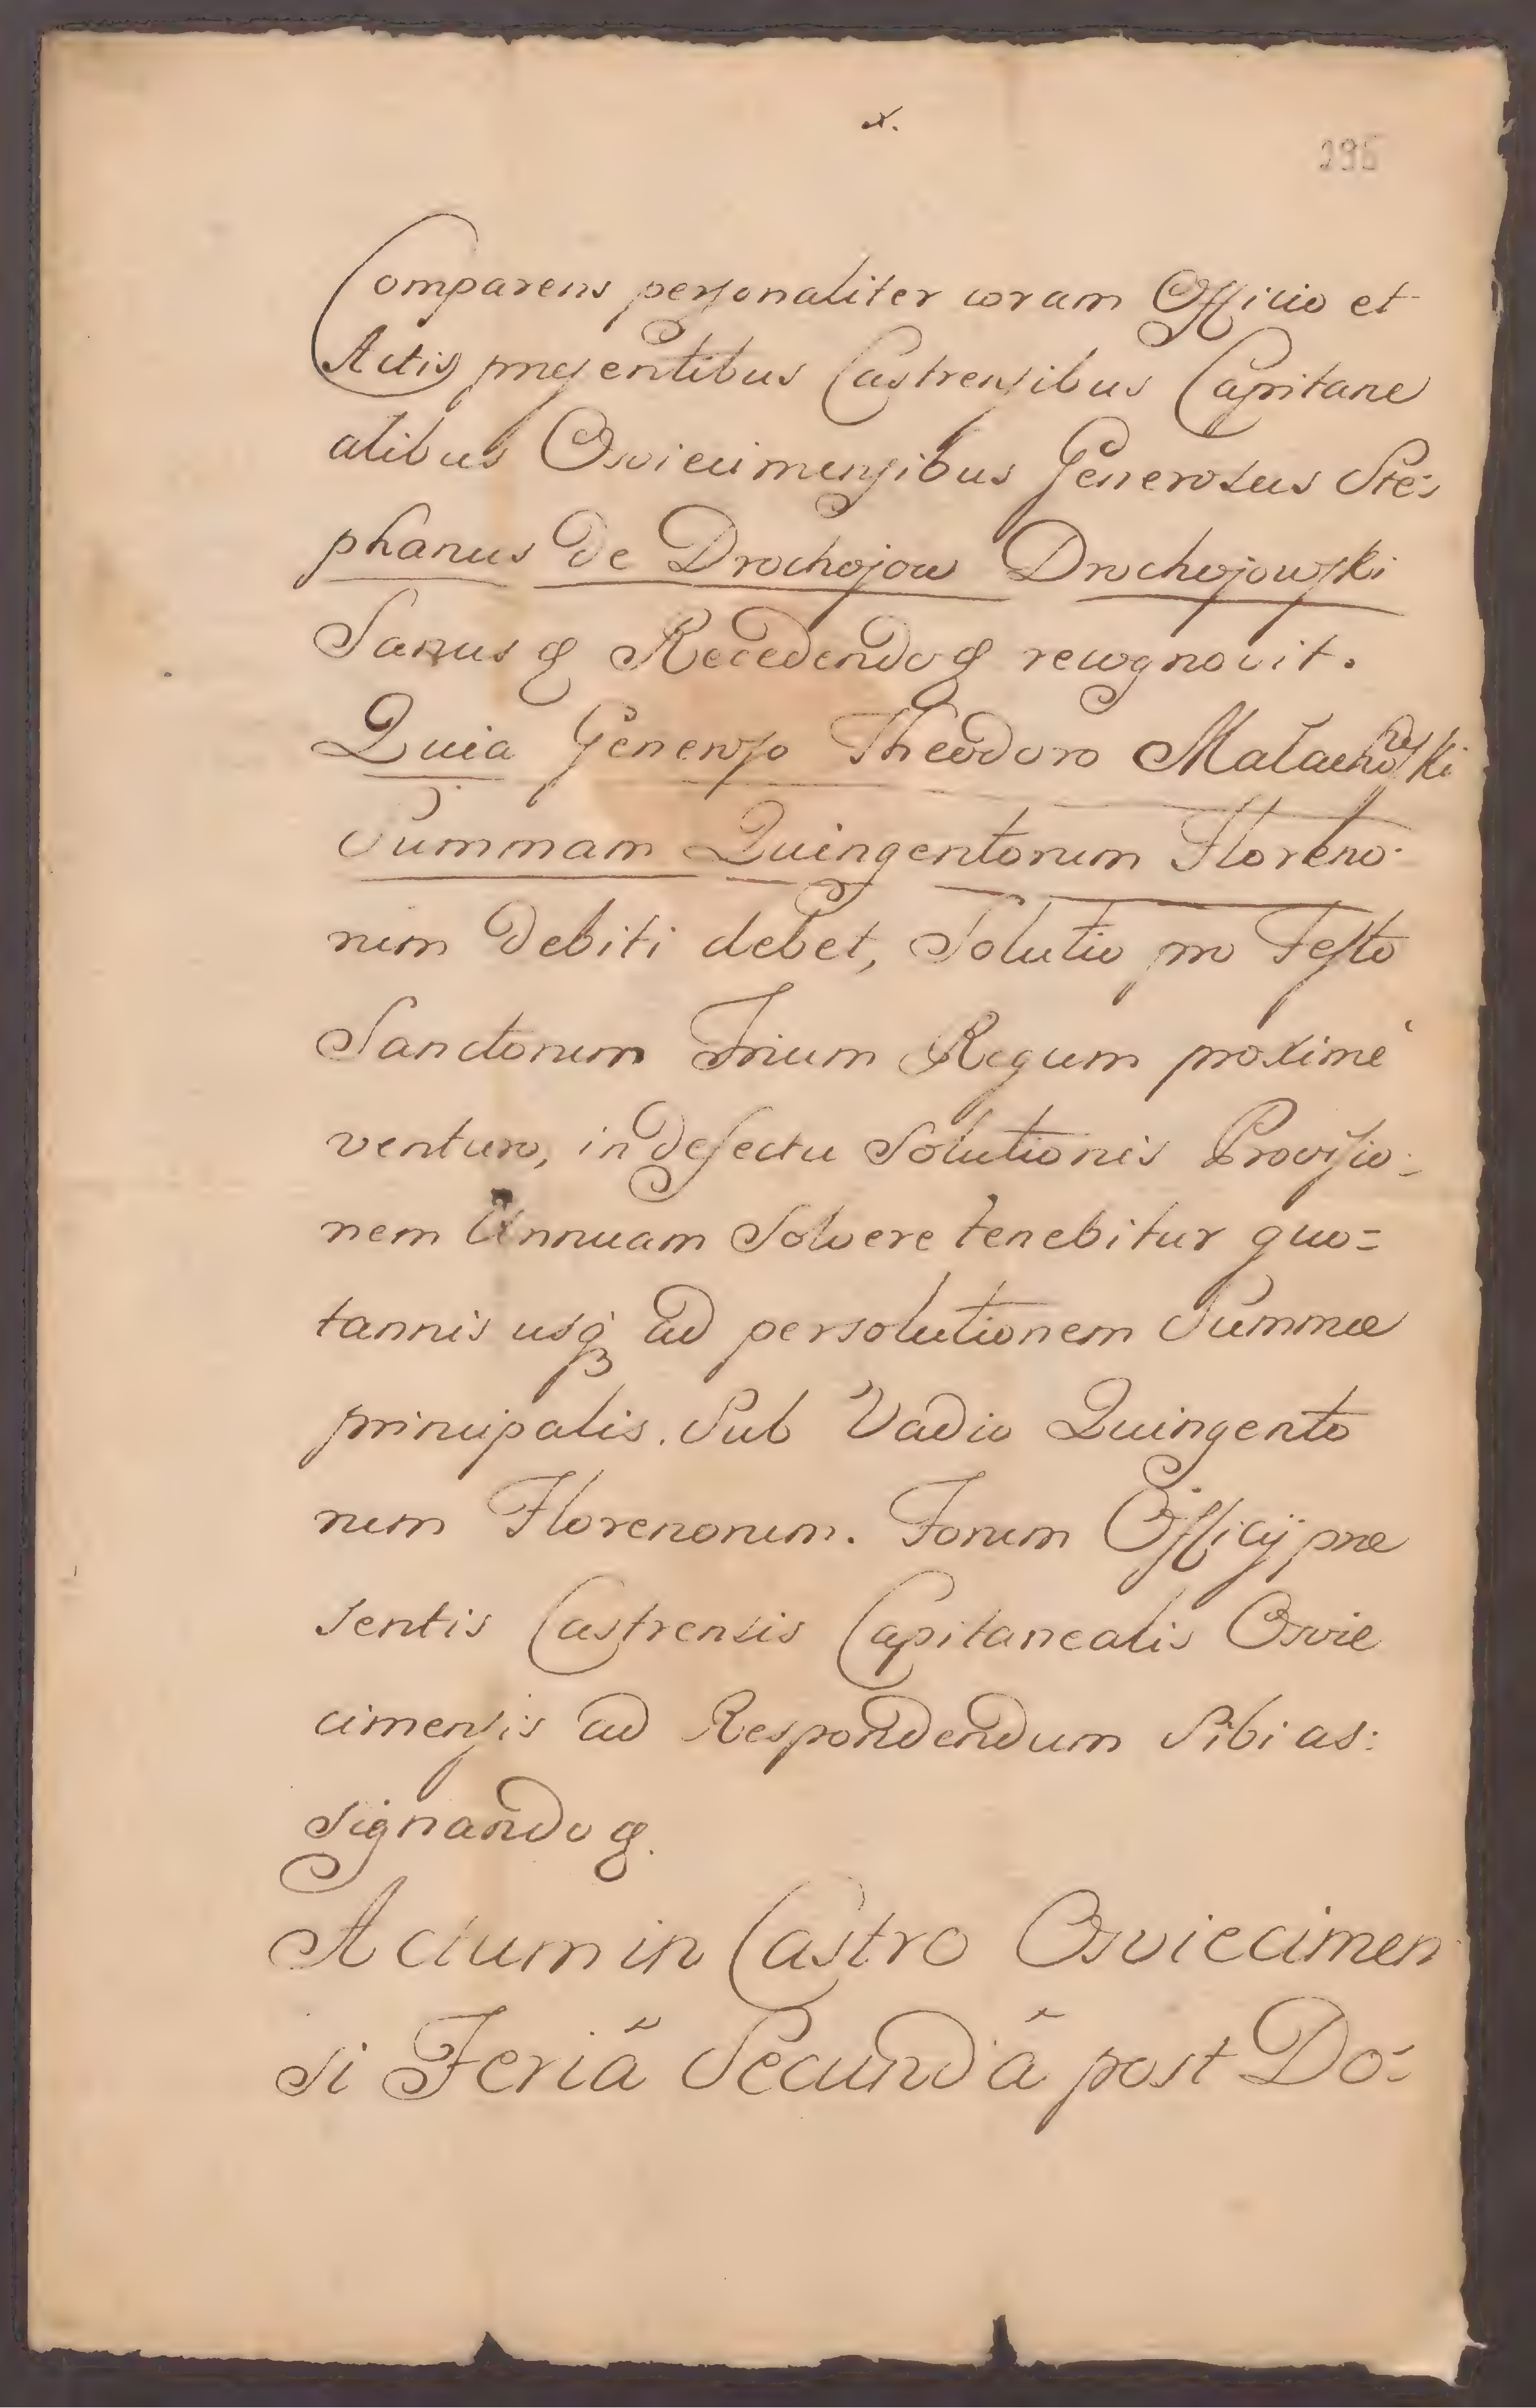 x.
295
Comparens personaliter coram Officio et
Actis præsentibus Castrensibus Capitane
alibus Osviecimensibus Generosus Ste:
phanus de Drochojow Drochojowski
Sanus & Recedendo & recognovit.
Quia Generoso Theodoro Małachowski
Summam Quingentorum Floreno:
rum Debiti debet, Solutio pro Festo
Sanctorum Trium Regum proximè
venturo, in defectu Solutionis Provisio:
nem Annuam Solvere tenebitur quo=
tannis usq3 ad persolutionem Summæ
principalis. Sub Vadio Quingento
rum Florenorum. Forum Officij præ
sentis Castrensis Capitanealis Osvie
cimensis ad Respondendum Sibi as:
signando &.
Actum in Castro Osviecimen
si Feriâ Secundâ post Do: